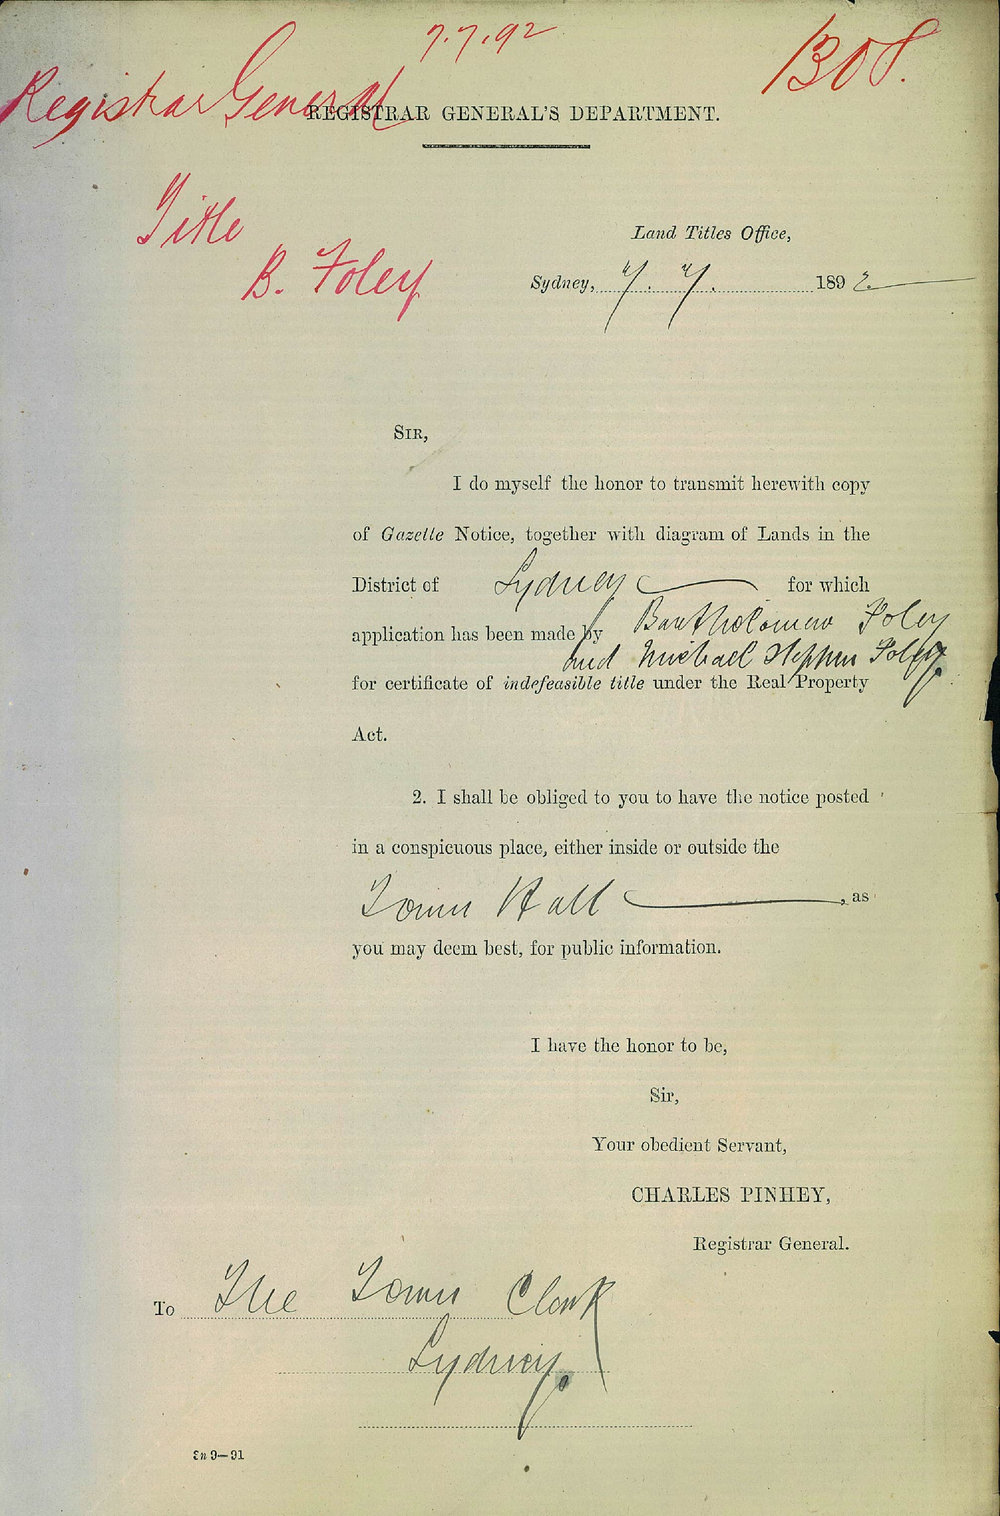 7.7.92
1308.
Registrar General
REGISTRAR GENERAL'S DEPARTMENT.
Title
B. Foley
Land Titles Office,
Sydney, 7. 7. 1892
SIR,
I do myself the honor to transmit herewith copy
of Gazette Notice, together with diagram of Lands in the
District of Sydney for which
application has been made by Bartholomew Foley
and Michael Stephen Foley.
for certificate of indefeasible title under the Real Property
Act.
2. I shall be obliged to you to have the notice posted
in a conspicuous place, either inside or outside the
Town Hall, as
you may deem best, for public information.
I have the honor to be,
Sir,
Your obedient Servant,
CHARLES PINHEY,
Registrar General.
To The Town Clerk
Sydney.
9—91